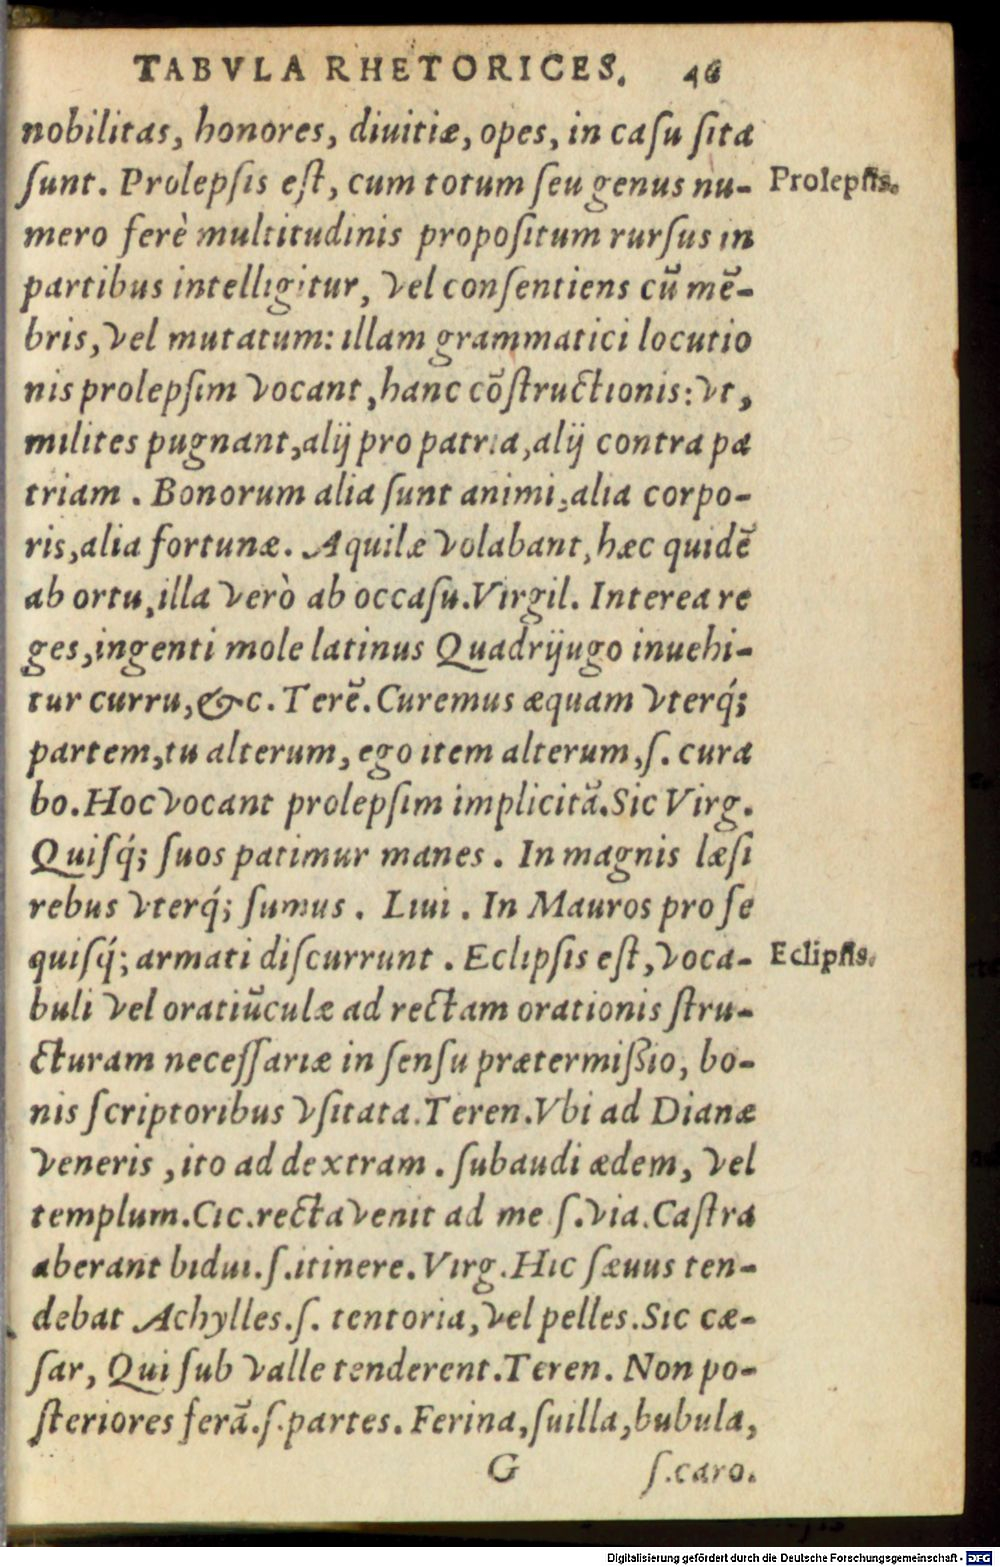 TABVLA RHETORICES. 46
nobilitas, honores, diuitiæ, opes, in caſu ſita
ſunt. Prolepſis eſt, cum totum ſeu genus nu- Prolepſis.
mero ferè multitudinis propoſitum rurſus in
partibus intelligitur, vel conſentiens cū mē-
bris, vel mutatum: illam grammatici locutio
nis prolepſim vocant, hanc cōſtructionis: vt,
milites pugnant, alij pro patria, alij contra pa
triam. Bonorum alia ſunt animi, alia corpo-
ris, alia fortunæ. Aquilæ volabant, hæc quidē
ab ortu, illa verò ab occaſu. Virgil. Interea re
ges, ingenti mole latinus Quadrijugo inuehi-
tur curru, &c. Terē. Curemus æquam vterq́;
partem, tu alterum, ego item alterum, ſ. cura
bo. Hoc vocant prolepſim implicitā. Sic Virg.
Quiſq́; ſuos patimur manes. In magnis læſi
rebus vterq́; ſumus. Liui. In Mauros pro ſe
quiſq́; armati diſcurrunt. Eclipſis eſt, voca- Eclipſis.
buli vel oratiūculæ ad rectam orationis ſtru-
cturam neceſſariæ in ſenſu prætermißio, bo-
nis ſcriptoribus vſitata. Teren. Vbi ad Dianæ
veneris, ito ad dextram. ſubaudi ædem, vel
templum. Cic. recta venit ad me ſ. via. Caſtra
aberant bidui. ſ. itinere. Virg. Hic ſæuus ten-
debat Achylles. ſ. tentoria, vel pelles. Sic cæ-
ſar, Qui ſub valle tenderent. Teren. Non po-
ſteriores ferā. ſ. partes. Ferina, ſuilla, bubula,
G ſ. caro.
Digitalisierung gefördert durch die Deutsche Forschungsgemeinschaft - DFG